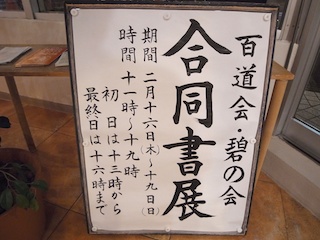 百道会・碧の会
合同書展
期間 二月十六日(木)～十九日(日)
時間 十一時～十九時
初日は十三時から
最終日は十六時まで